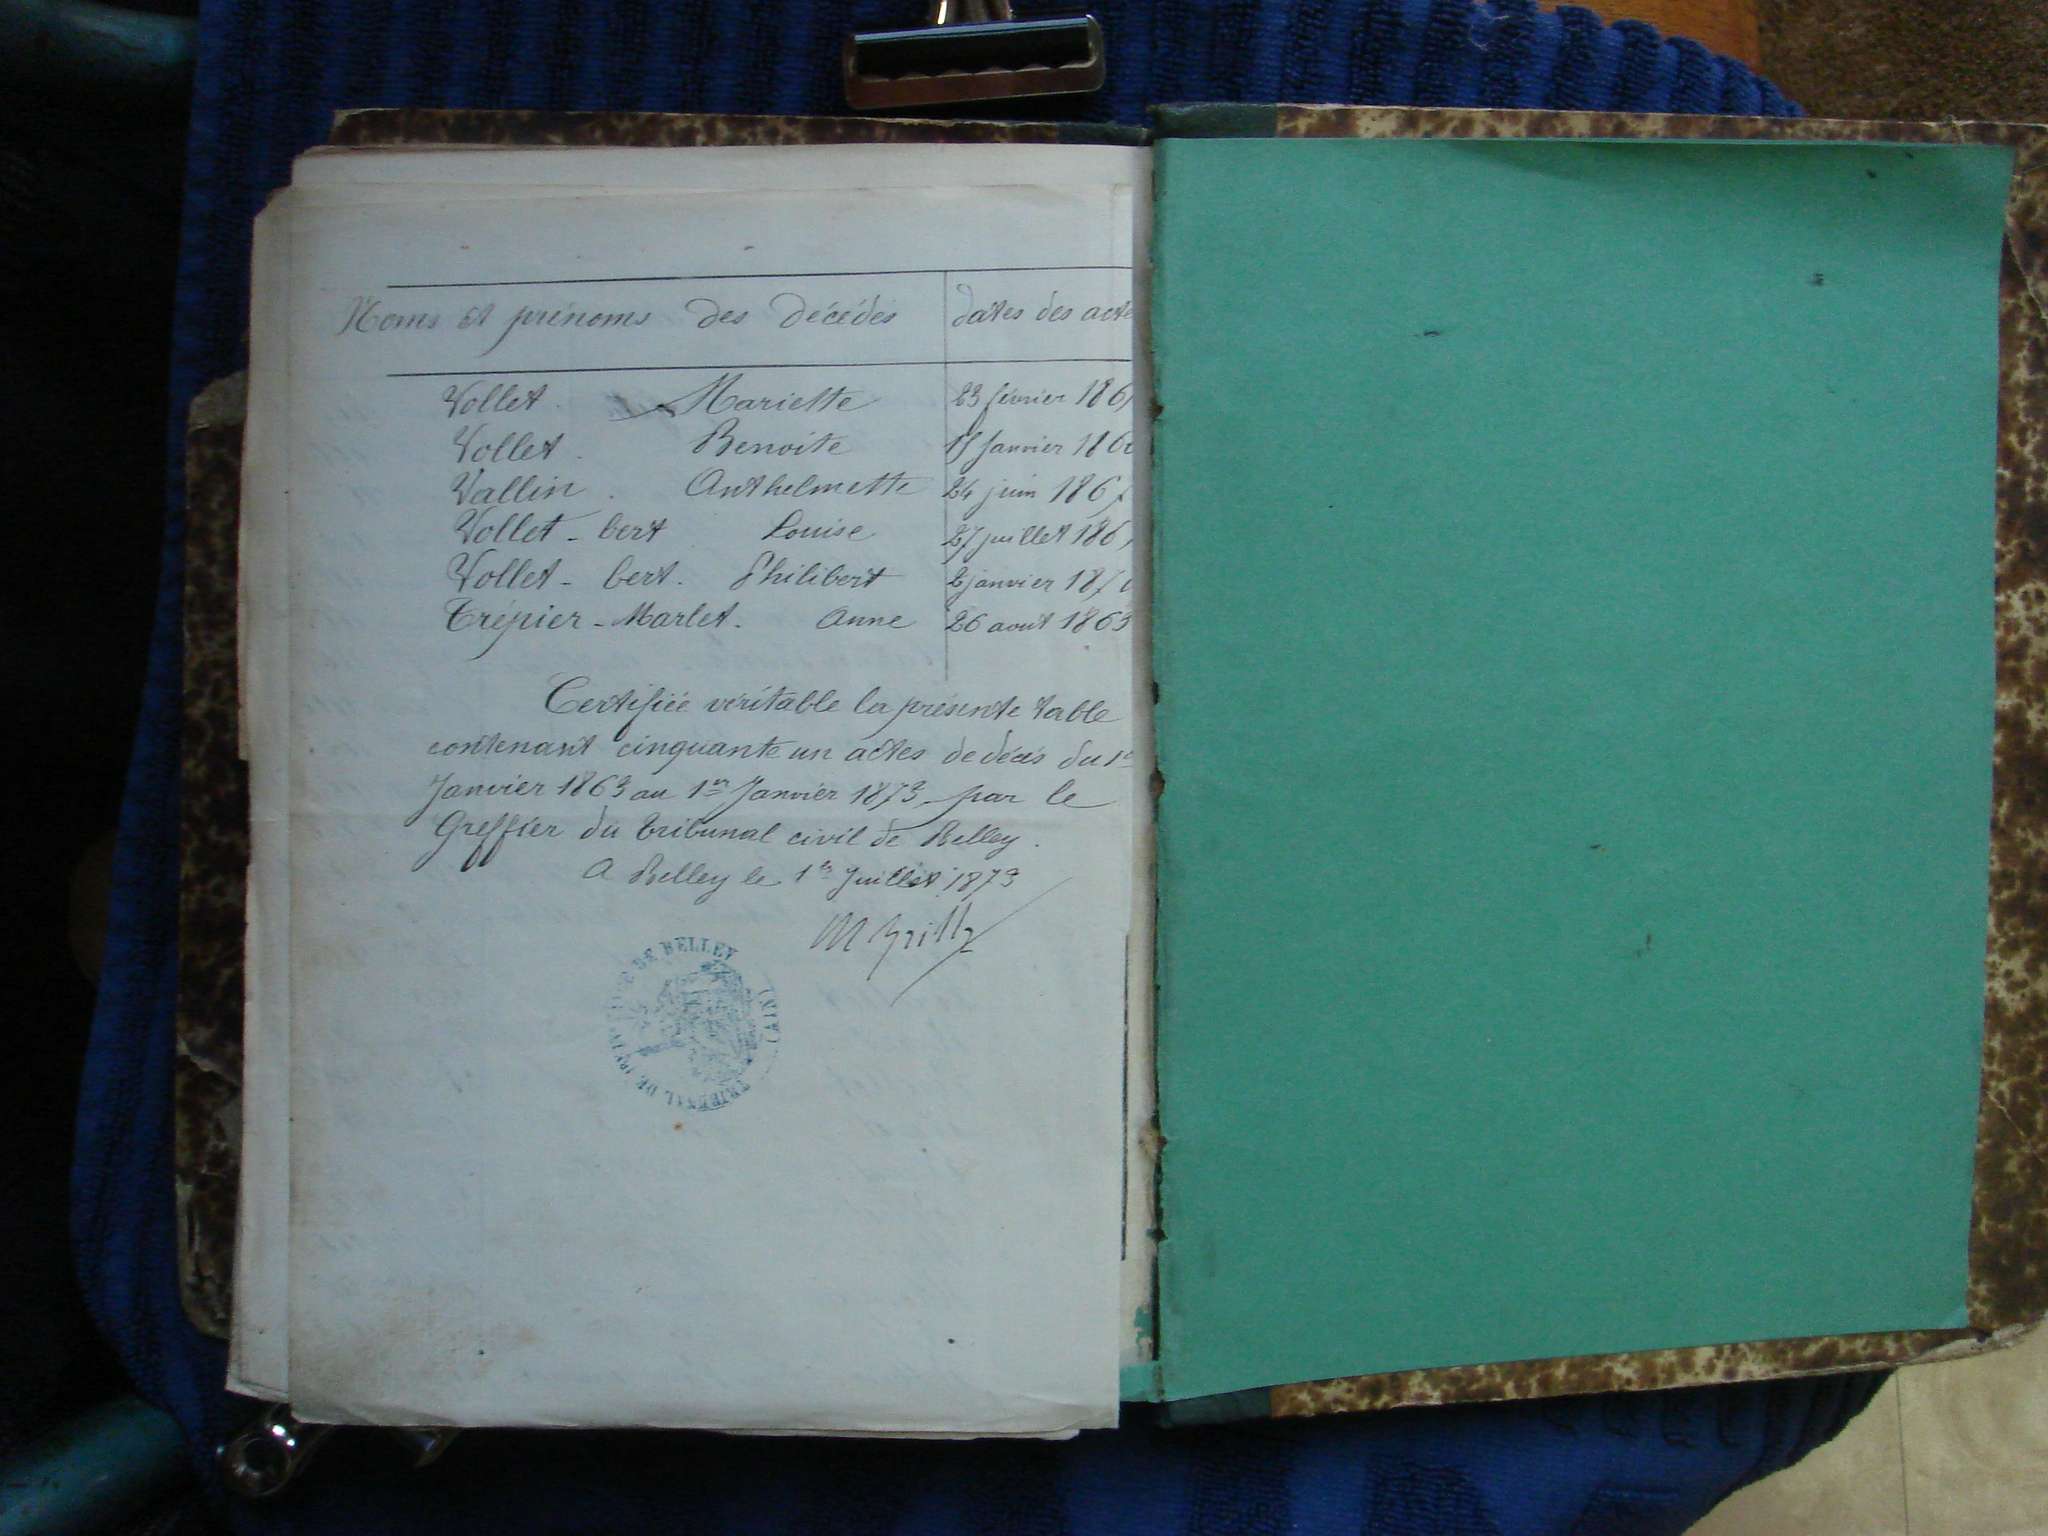 Noms et prénoms des décédés dates des acte
Vollet Mariette 23 février 186
Vollet Benoite 15 Janvier 186
Vallin Anthelmette 24 juin 186
Vollet-bert Louise 27 juillet 186
Vollet-bert. Philibert 2 janvier 187
Trépier-Marlet. Anne 26 aout 1863
Certifiée véritable la présente table
contenant cinquante un actes de décès du 1er
Janvier 1863 au 1er Janvier 1873 par le
Greffier du tribunal civil de Belley.
A Belley le 1er Juillet 1873
TRIBUNAL DE DE BELLEY (AIN)